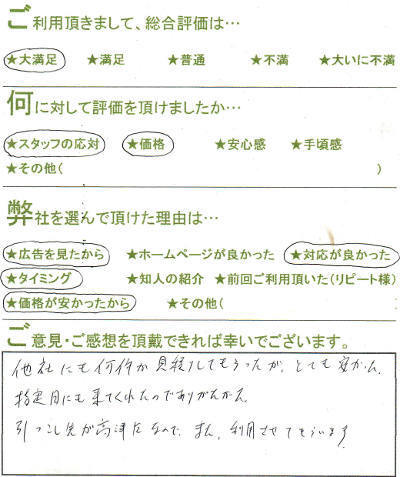 ご利用頂きまして、総合評価は…
★大満足 ★満足 ★普通 ★不満 ★大いに不満
何に対して評価を頂けましたか…
★スタッフの応対 ★価格 ★安心感 ★手頃感
★その他( )
弊社を選んで頂けた理由は…
★広告を見たから ★ホームページが良かった ★対応が良かった
★タイミング ★知人の紹介 ★前回ご利用頂いた(リピート様)
★価格が安かったから ★その他(
ご意見・ご感想を頂戴できれば幸いでございます。
他社にも何件か見積りしてもらったが、とても安かった。
指定日にも来てくれたのでありがたかった。
引っこし先が高津区なので、また、利用させてもらいます。